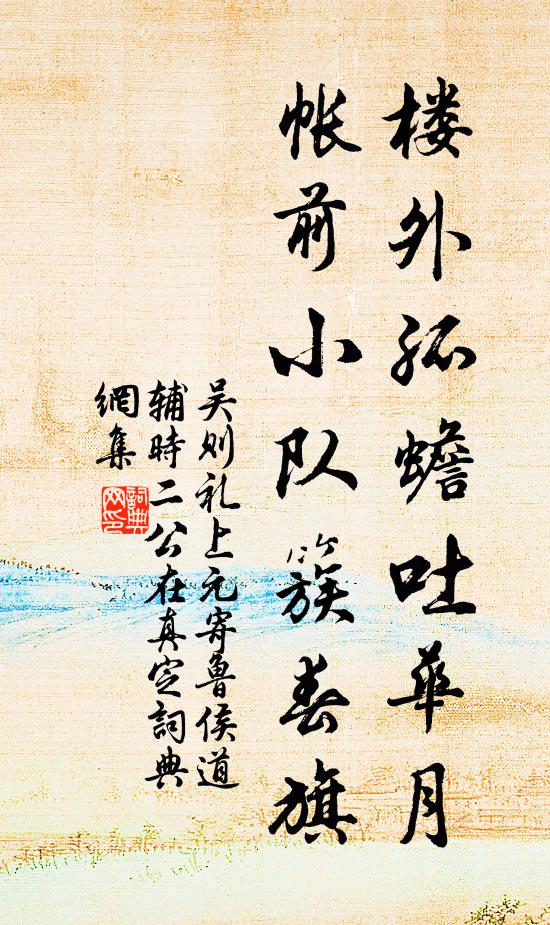 楼外孤蟾吐华月
帐前小队簇春旗
吴则礼上元寄鲁侯道
辅時二公在真定詞典
網集
詞典
网印